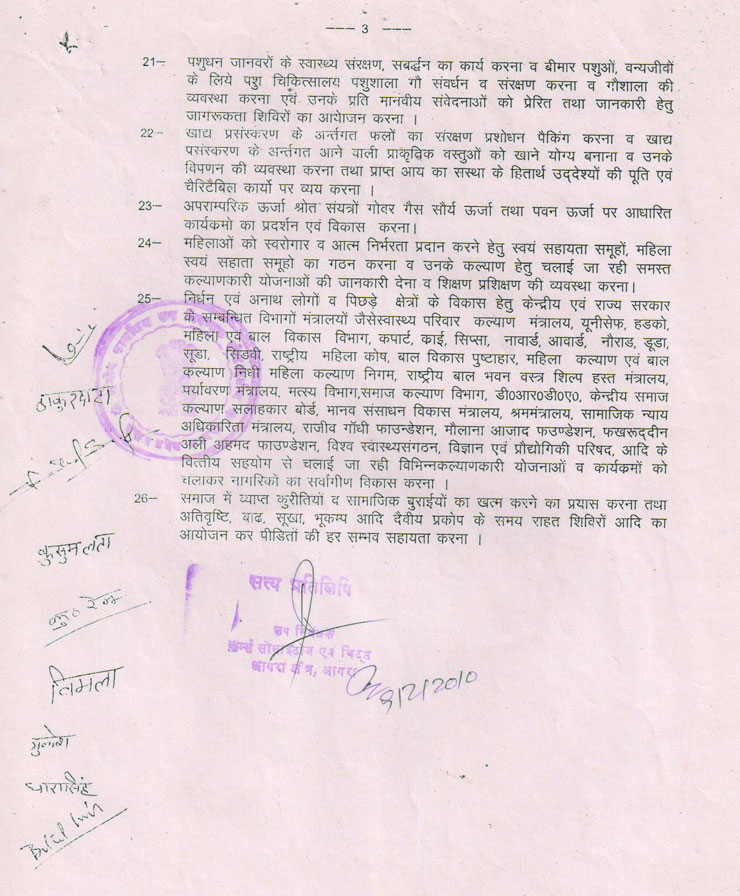 --- 3 ---
21— पशुधन जानवरों के स्वास्थ्य संरक्षण, सबर्द्धन का कार्य करना व बीमार पशुओं, वन्यजीवों
के लिये पशु चिकित्सालय पशुशाला गौ संवर्धन व संरक्षण करना व गौशाला की
व्यवस्था करना एवं उनके प्रति मानवीय संवेदनाओं को प्रेरित तथा जानकारी हेतु
जागरूकता शिविरों का आयेाजन करना ।
22— खाद्य प्रसंस्करण के अर्न्तगत फलों का संरक्षण प्रशोधन पैकिंग करना व खाद्य
पसंस्करण के अर्न्तगत आने वाली प्राकृतिक वस्तुओं को खाने योग्य बनाना व उनके
विपणन की व्यवस्था करना तथा प्राप्त आय का संस्था के हितार्थ उद्देश्यों की पूति एवं
चैरिटैबिल कार्यो पर व्यय करना ।
23— अपराम्परिक ऊर्जा श्रोत संयत्रों गोवर गैस सौर्य ऊर्जा तथा पवन ऊर्जा पर आधारित
कार्यकमो का प्रदर्शन एवं विकास करना।
24— महिलाओं को स्वरोगार व आत्म निर्भरता प्रदान करने हेतु स्वयं सहायता समूहों, महिला
स्वयं सहाता समूहो का गठन करना व उनके कल्याण हेतु चलाई जा रही समस्त
कल्याणकारी योजनाओं की जानकारी देना व शिक्षण प्रशिक्षण की व्यवस्था करना।
25— निर्धन एवं अनाथ लोगों व पिछड़े क्षेत्रों के विकास हेतु केन्द्रीय एवं राज्य सरकार
के सम्बन्धित विभागों मंत्रालयों जैसेस्वास्थ्य परिवार कल्याण मंत्रालय, यूनीसेफ, हडको,
महिला एवं बाल विकास विभाग, कपार्ट, काई, सिप्सा, नावार्ड, आवार्ड, नौराड, डूडा,
सूडा, सिडवी, राष्ट्रीय महिला कोष, बाल विकास पुष्टाहार, महिला कल्याण एवं बाल
कल्याण निधी महिला कल्याण निगम, राष्ट्रीय बाल भवन वस्त्र शिल्प हस्त मंत्रालय,
पर्यावरण मंत्रालय, मत्स्य विभाग,समाज कल्याण विभाग, डी०आर०डी०ए०, केन्द्रीय समाज
कल्याण सलाहकार बोर्ड, मानव संसाधन विकास मंत्रालय, श्रममंत्रालय, सामाजिक न्याय
अधिकारिता मंत्रालय, राजीव गाँधी फाउन्डेशन, मौलाना आजाद फउण्डेशन, फखरूद्दीन
अली अहमद फाउण्डेशन, विश्व स्वास्थ्यसंगठन, विज्ञान एवं प्रौद्योगिकी परिषद, आदि के
वित्तीय सहयोग से चलाई जा रही विभिन्नकल्याणकारी योजनाओं व कार्यकमों को
चलाकर नागरिकों का सर्वागीण विकास करना ।
26— समाज में व्याप्त कुरीतियों व सामाजिक बुराईयों का खत्म करने का प्रयास करना तथा
अतिवृष्टि, बाढ, सूखा, भूकम्प आदि दैवीय प्रकोप के समय राहत शिविरों आदि का
आयोजन कर पीडितों की हर सम्भव सहायता करना ।
ठाकुरदास
कुसुमलता
विमला
मुकेश
धारासिंह
सत्य प्रतिलिपि
उप निबंधक
फर्म्स सोसाइटीज एवं चिट्स
आगरा क्षेत्र, आगरा
9/2/2010